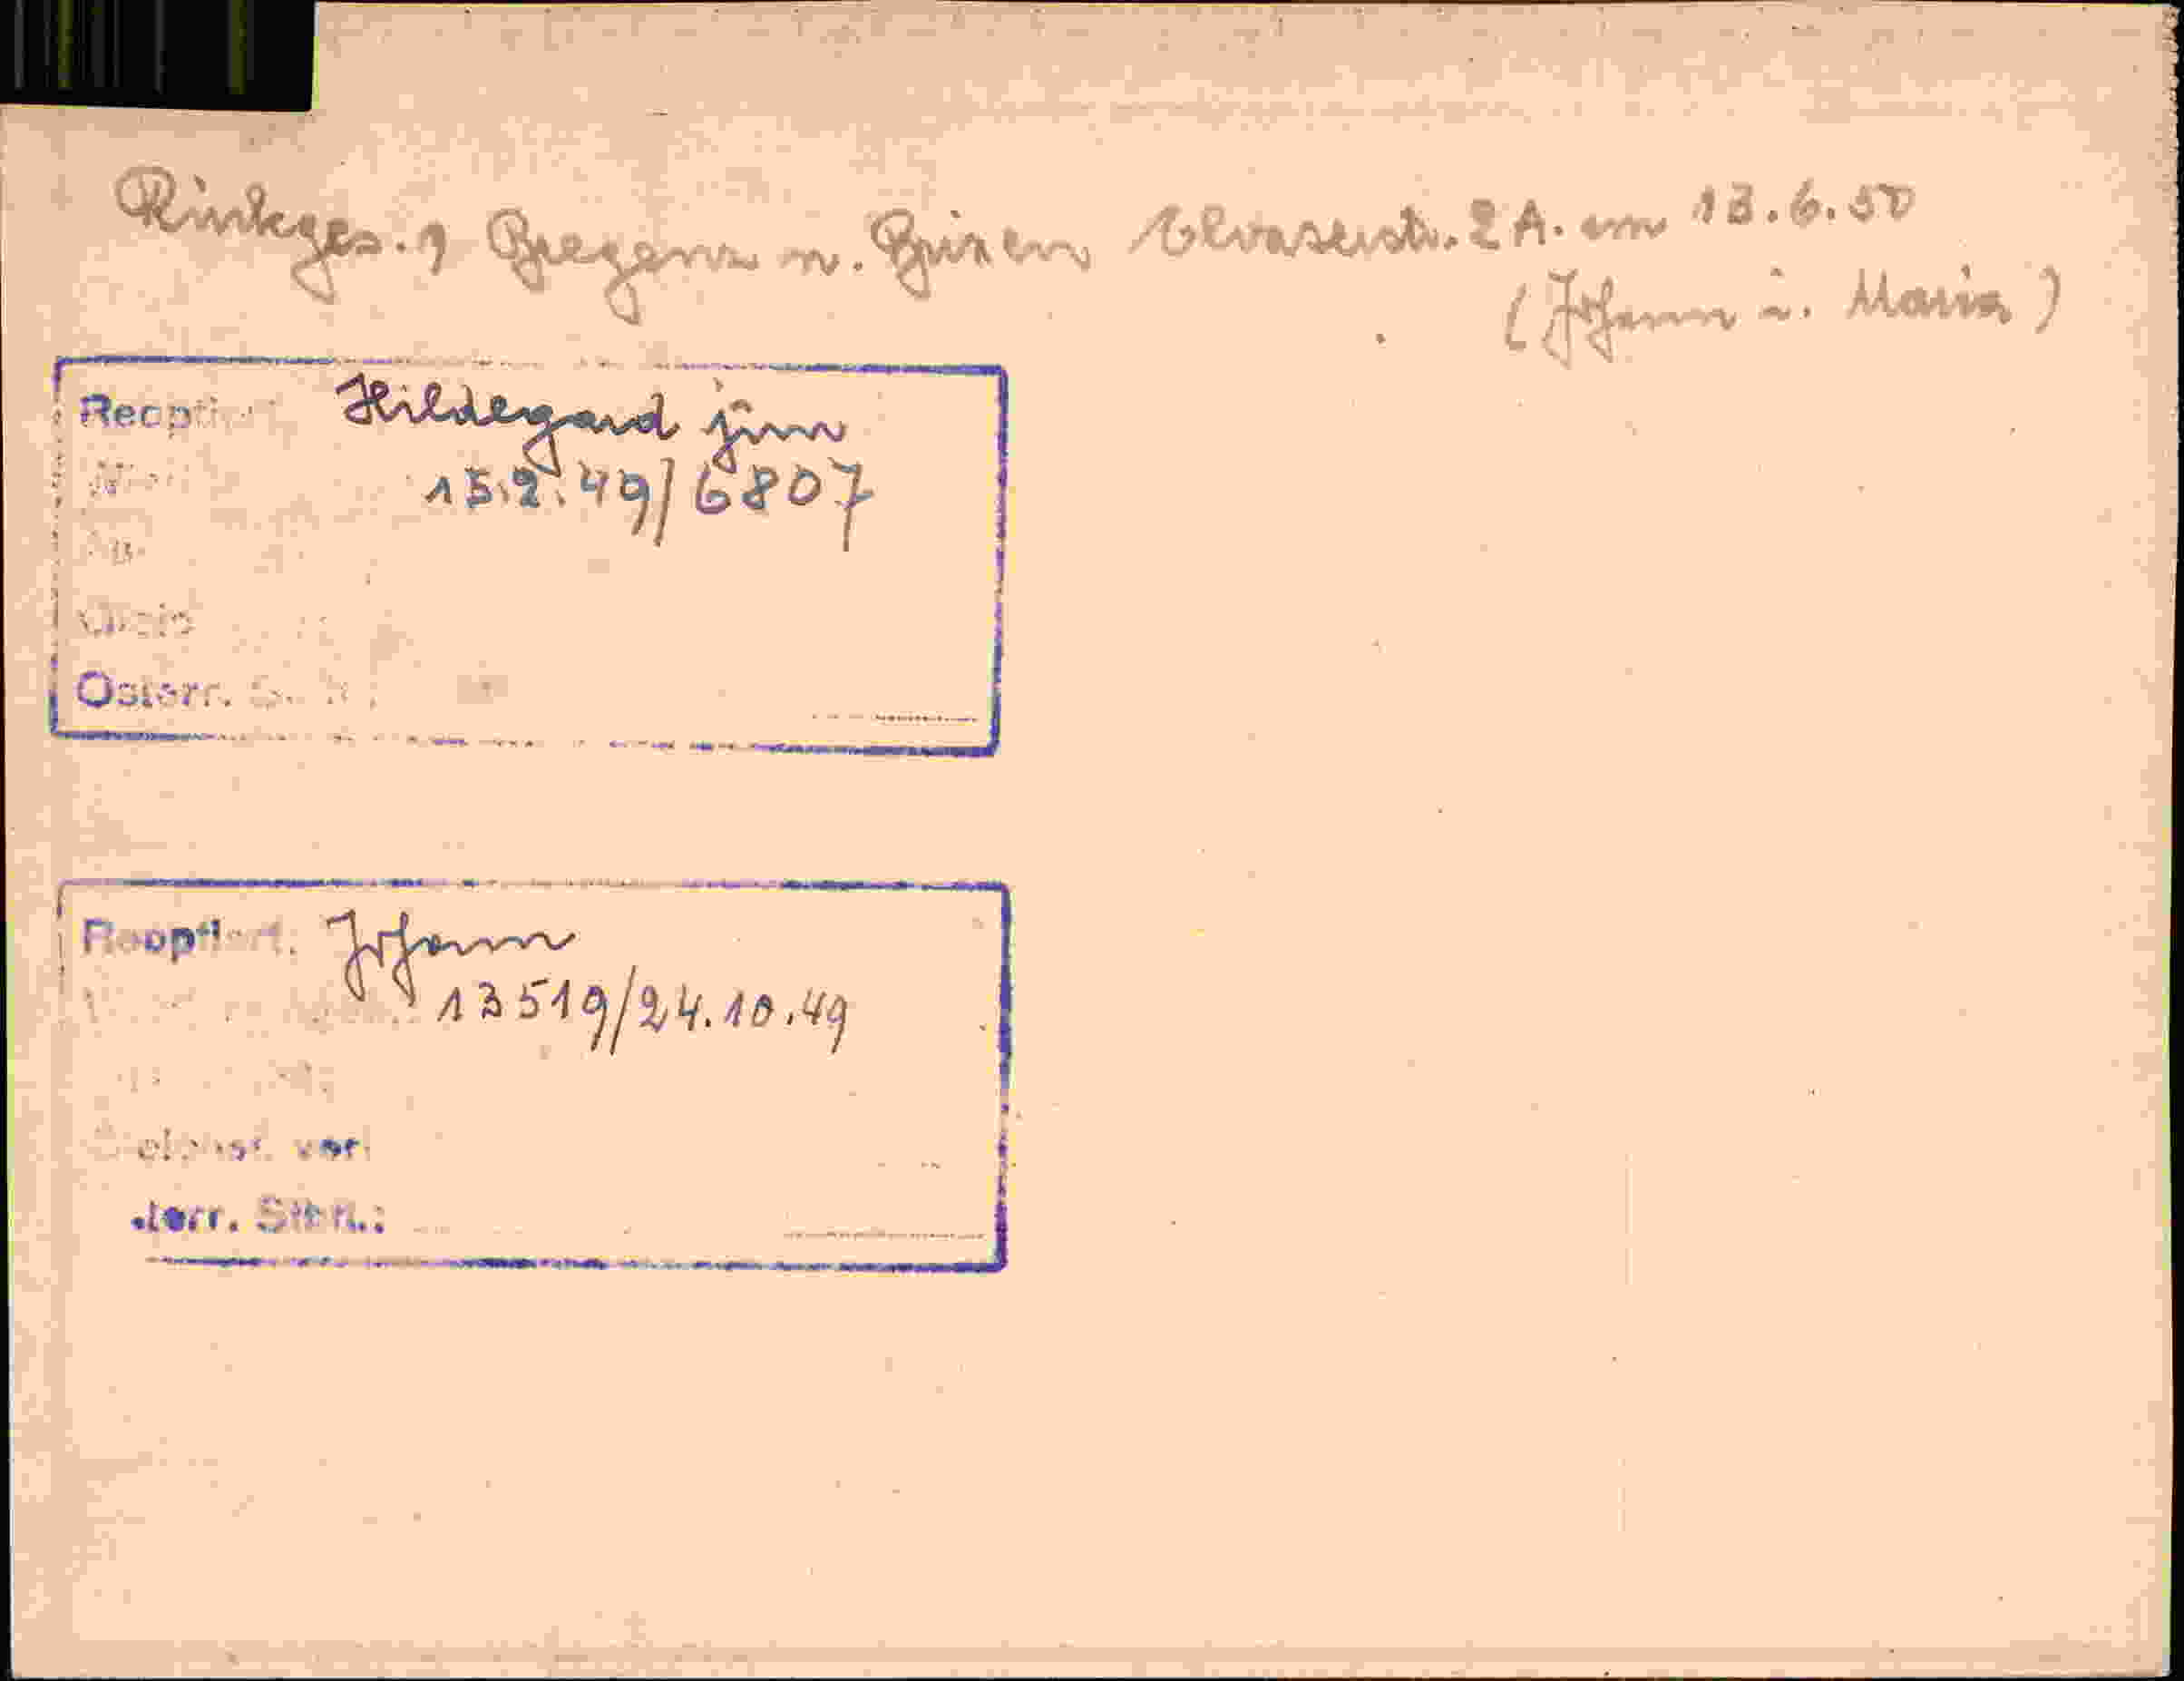 Rückges. v. Bregenz n. Brixen Elvaserstr. 2 A. am 13.6.50
(Johann u. Maria)
Reoptiert Hildegard jun
15.2.49/6807
Österr.
Reoptiert. Johann
13519/24.10.49
terr. Stbn.: